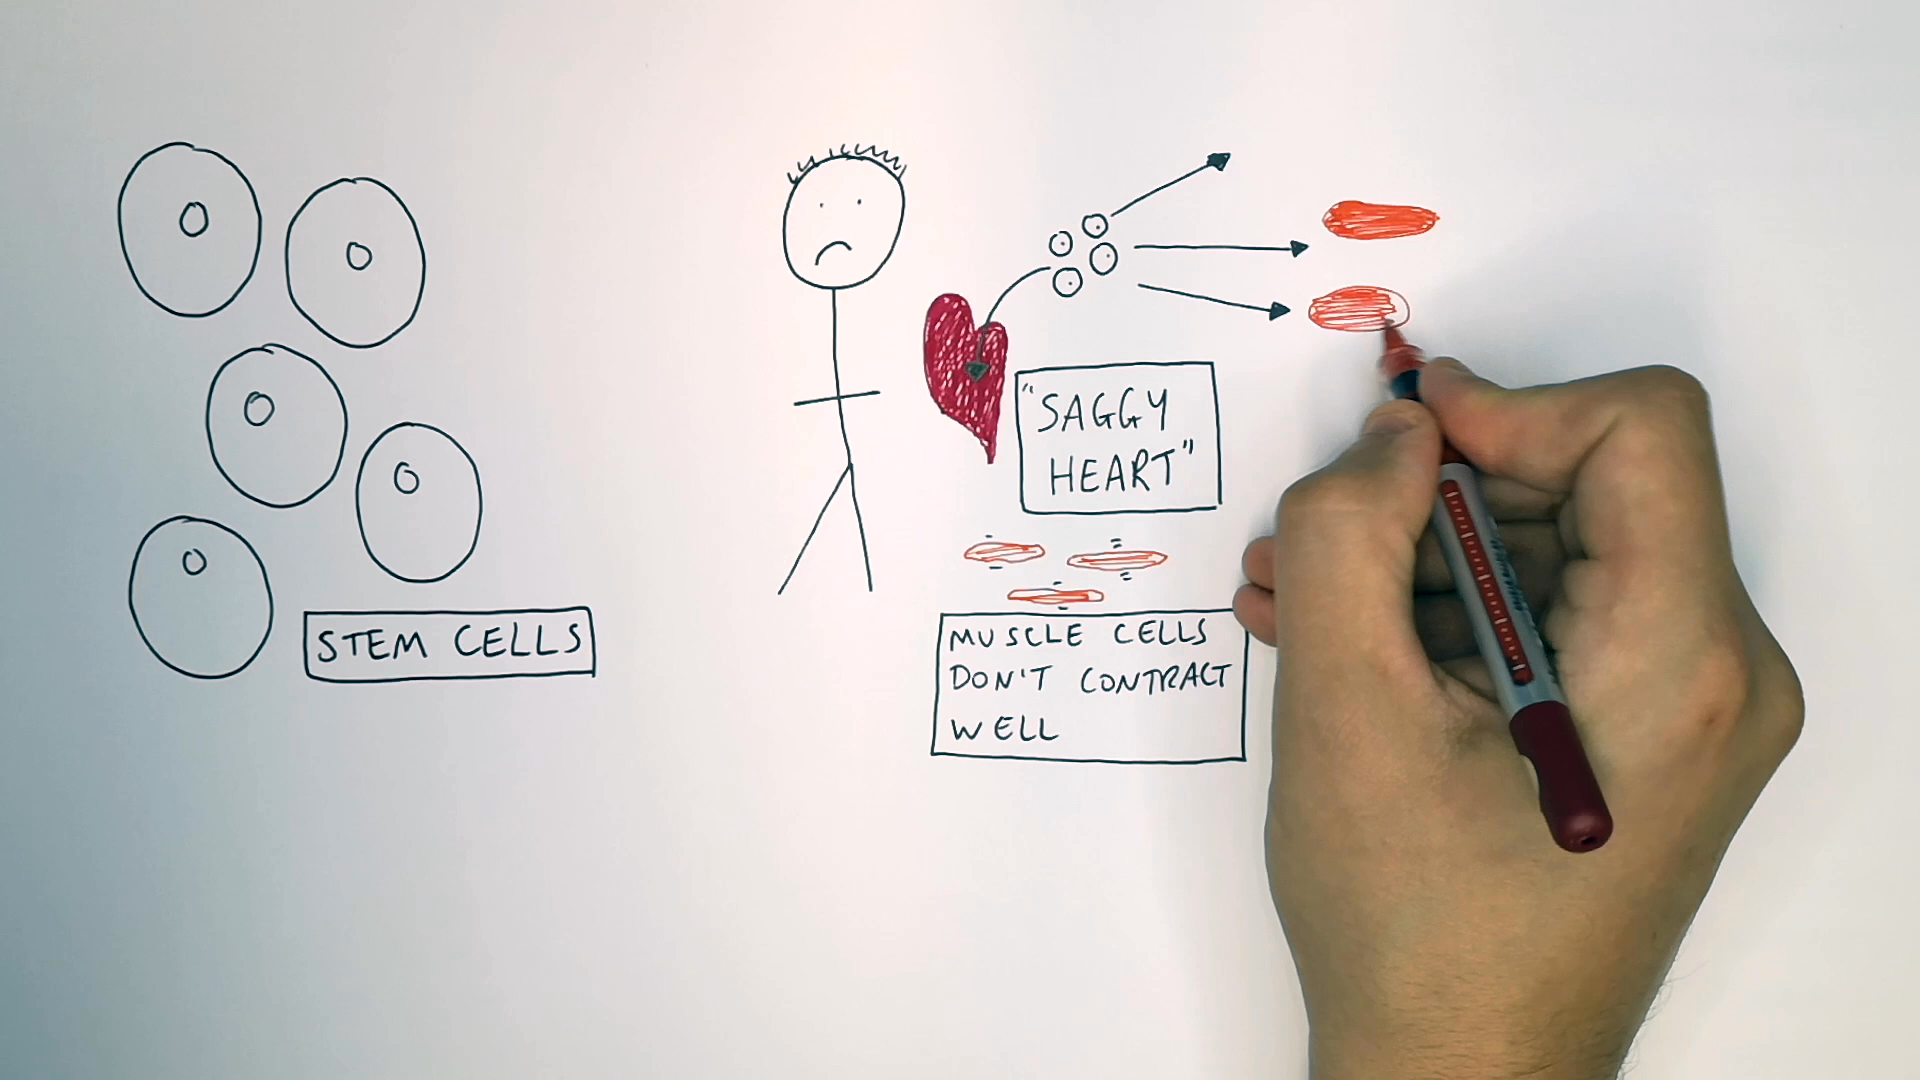 STEM CELLS
"SAGGY
HEART"
MUSCLE CELLS
DON'T CONTRACT
WELL